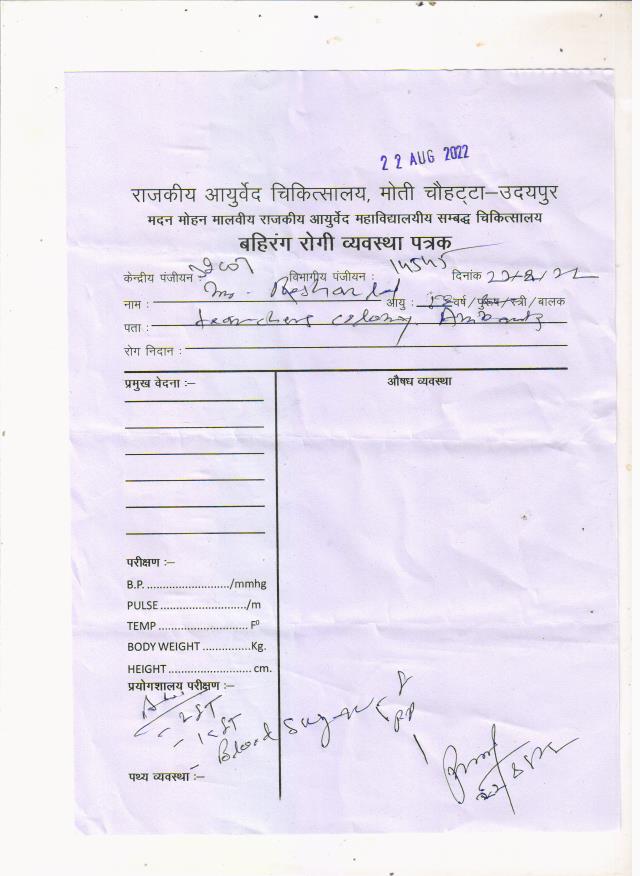 22 AUG 2022
राजकीय आयुर्वेद चिकित्सालय, मोती चौहट्टा–उदयपुर
मदन मोहन मालवीय राजकीय आयुर्वेद महाविद्यालयीय सम्बद्ध चिकित्सालय
बहिरंग रोगी व्यवस्था पत्रक
केन्द्रीय पंजीयन : विभागीय पंजीयन : 14545 दिनांक 22/8/22
नाम : आयु : वर्ष / पुरूष / स्त्री / बालक
पता : colony
रोग निदान :
प्रमुख वेदना :–
औषध व्यवस्था
परीक्षण :–
B.P. ........................../mmhg
PULSE ........................../m
TEMP ........................... F⁰
BODY WEIGHT ...............Kg.
HEIGHT .......................... cm.
प्रयोगशालय परीक्षण :–
Adv
- LFT
- KFT
- Blood Sugar F
PP
पथ्य व्यवस्था :–